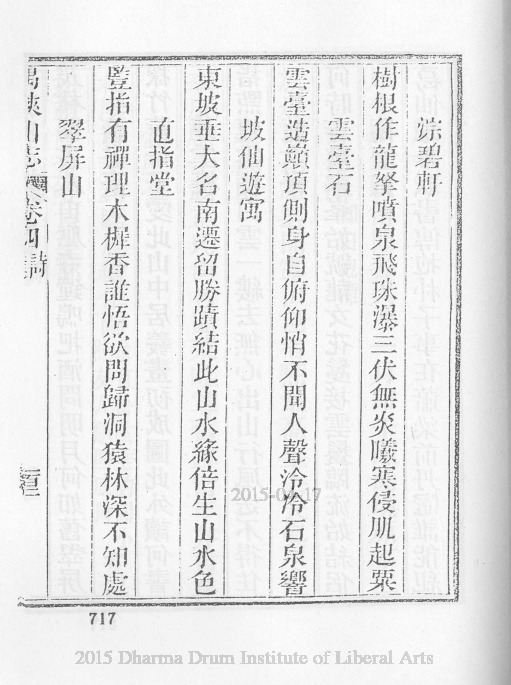 淙碧軒
樹根作龍拏噴泉飛珠瀑三伏無炎曦寒侵肌起粟
雲臺石
雲臺造巔頂側身自俯仰悄不聞人聲泠泠石泉響
坡仙遊寓
東坡垂大名南遷留勝蹟結此山水緣倍生山水色
直指堂
豎指有禪理木樨香誰悟欲問歸洞猿林深不知處
翠屏山
禺峽山志 卷四 詩
717
2015 Dharma Drum Institute of Liberal Arts